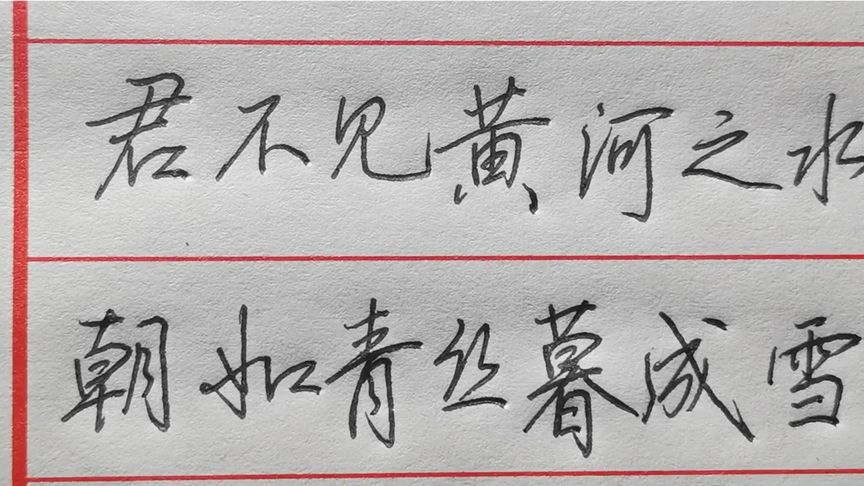 君不见黄河之水
朝如青丝暮成雪